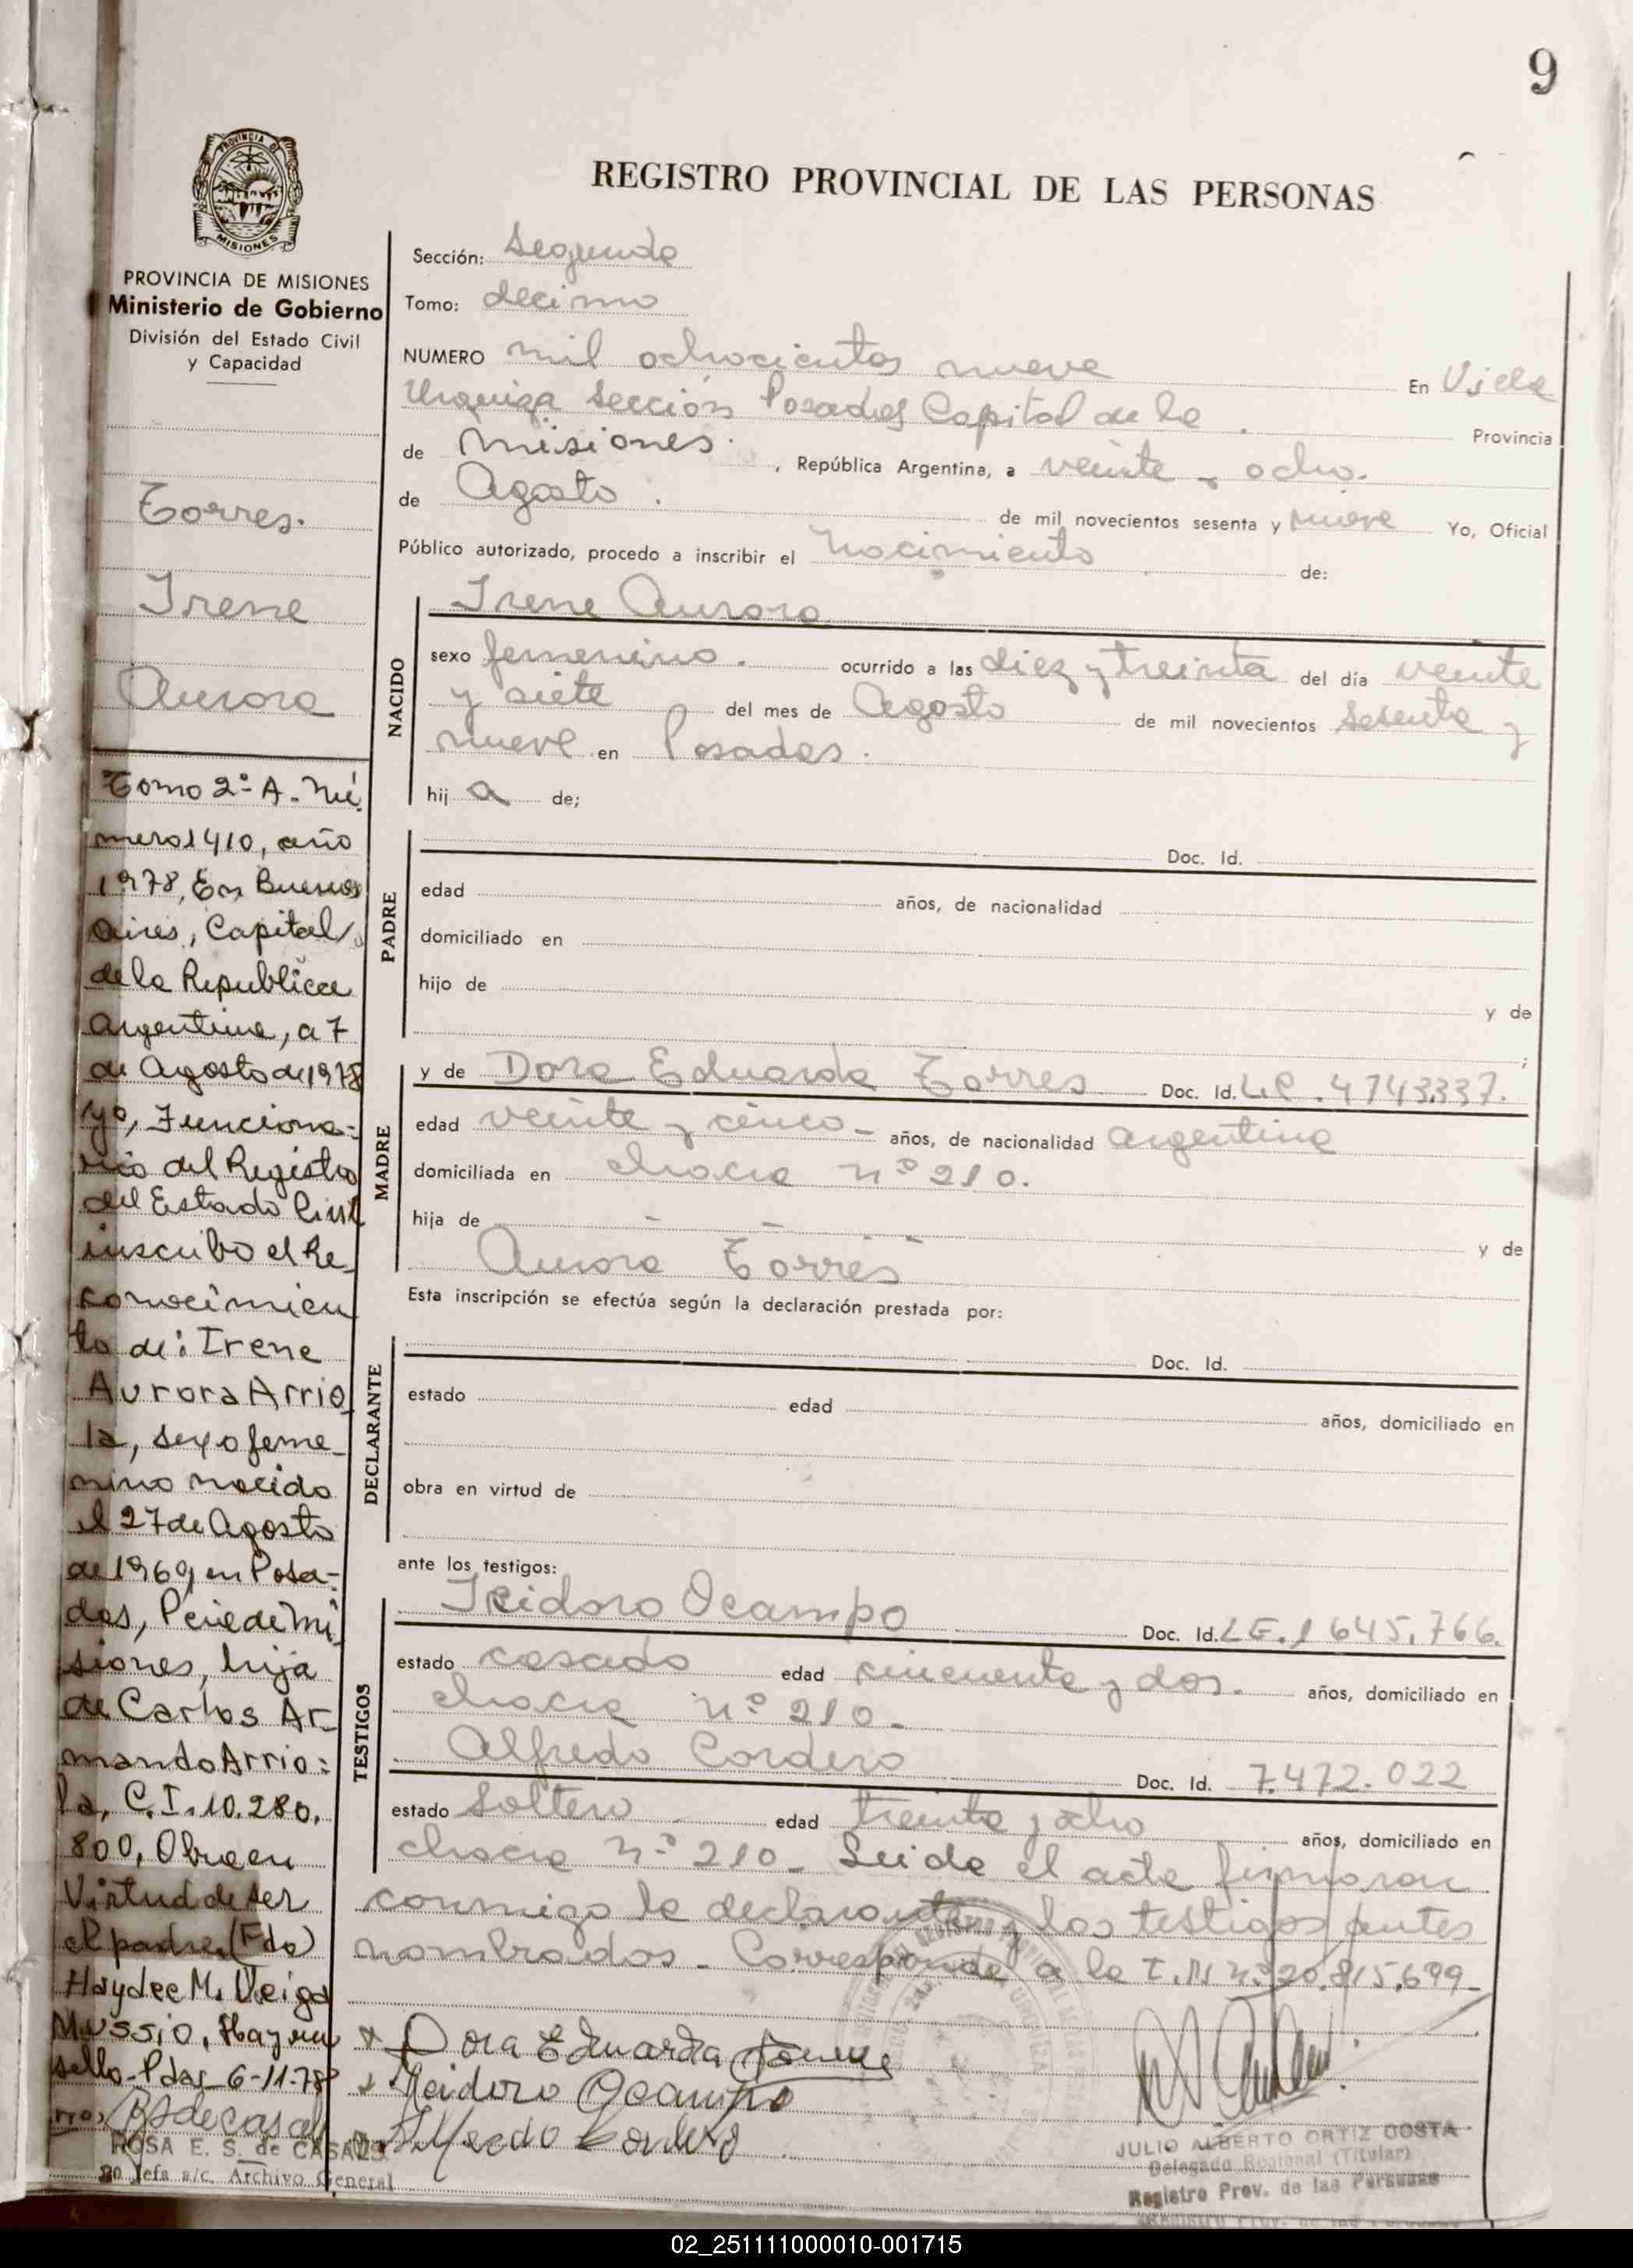 9
PROVINCIA DE
MISIONES
PROVINCIA DE MISIONES
Ministerio de Gobierno
División del Estado Civil
y Capacidad
Torres.
Irene
Aurora
Tomo 2º A. Nú
mero 1410, año
1978, En Buenos
Aires, Capital
de la Republica
Argentina, a 7
de Agosto de 1978
yo, Funciona=
rio del Registro
del Estado Civil
inscribo el Re_
conocimien
to de: Irene
Aurora Arrio_
la, sexo feme_
nino nacido
el 27 de Agosto
de 1969 en Posa-
das, Pcia de Mi_
siones, hija
de Carlos Ar_
mando Arrio=
la, C.I. 10.280.
800, Obra en
Virtud de ser
el padre (Fdo)
Haydee M. Veiga
Mussio. Hay un
sello - Pdas_ 6-11-78
ROSA E. S. de CASALS
Jefa a/c. Archivo General
REGISTRO PROVINCIAL DE LAS PERSONAS
Sección: Segunda
Tomo: decimo
NUMERO mil ochocientos nueve En Villa
Urquiza Sección Posadas Capital de la Provincia
de Misiones. , República Argentina, a veinte y ocho.
de Agosto . de mil novecientos sesenta y nueve Yo, Oficial
Público autorizado, procedo a inscribir el nacimiento de:
NACIDO
Irene Aurora
sexo femenino. ocurrido a las diez y treinta del día veinte
y siete del mes de Agosto de mil novecientos sesenta y
nueve en Posadas.
hij a de;
PADRE
Doc. Id.
edad años, de nacionalidad
domiciliado en
hijo de y de
;
MADRE
y de Dora Eduarda Torres Doc. Id. L.C. 4743.337.
edad veinte y cinco - años, de nacionalidad argentina
domiciliada en chacra nº 210.
hija de - - - y de
Aurora Torres
Esta inscripción se efectúa según la declaración prestada por:
DECLARANTE
Doc. Id.
estado edad años, domiciliado en
obra en virtud de
ante los testigos:
TESTIGOS
Isidoro Ocampo Doc. Id. L.E. 1645.766.
estado casado edad cincuenta y dos. años, domiciliado en
chacra nº 210.-
Alfredo Cordero Doc. Id. 7.472.022
estado Soltero edad treinta y ocho años, domiciliado en
chacra nº 210- Leida el acta firmaron
conmigo la declarante y los testigos antes
nombrados. Corresponde a la I.N. nº 20.815.699-
x Dora Eduarda Torres
x Isidoro Ocampo
Alfredo Cordero
JULIO ALBERTO ORTIZ COSTA
Delegado Regional (Titular)
Registro Prov. de las Personas
02_251111000010-001715